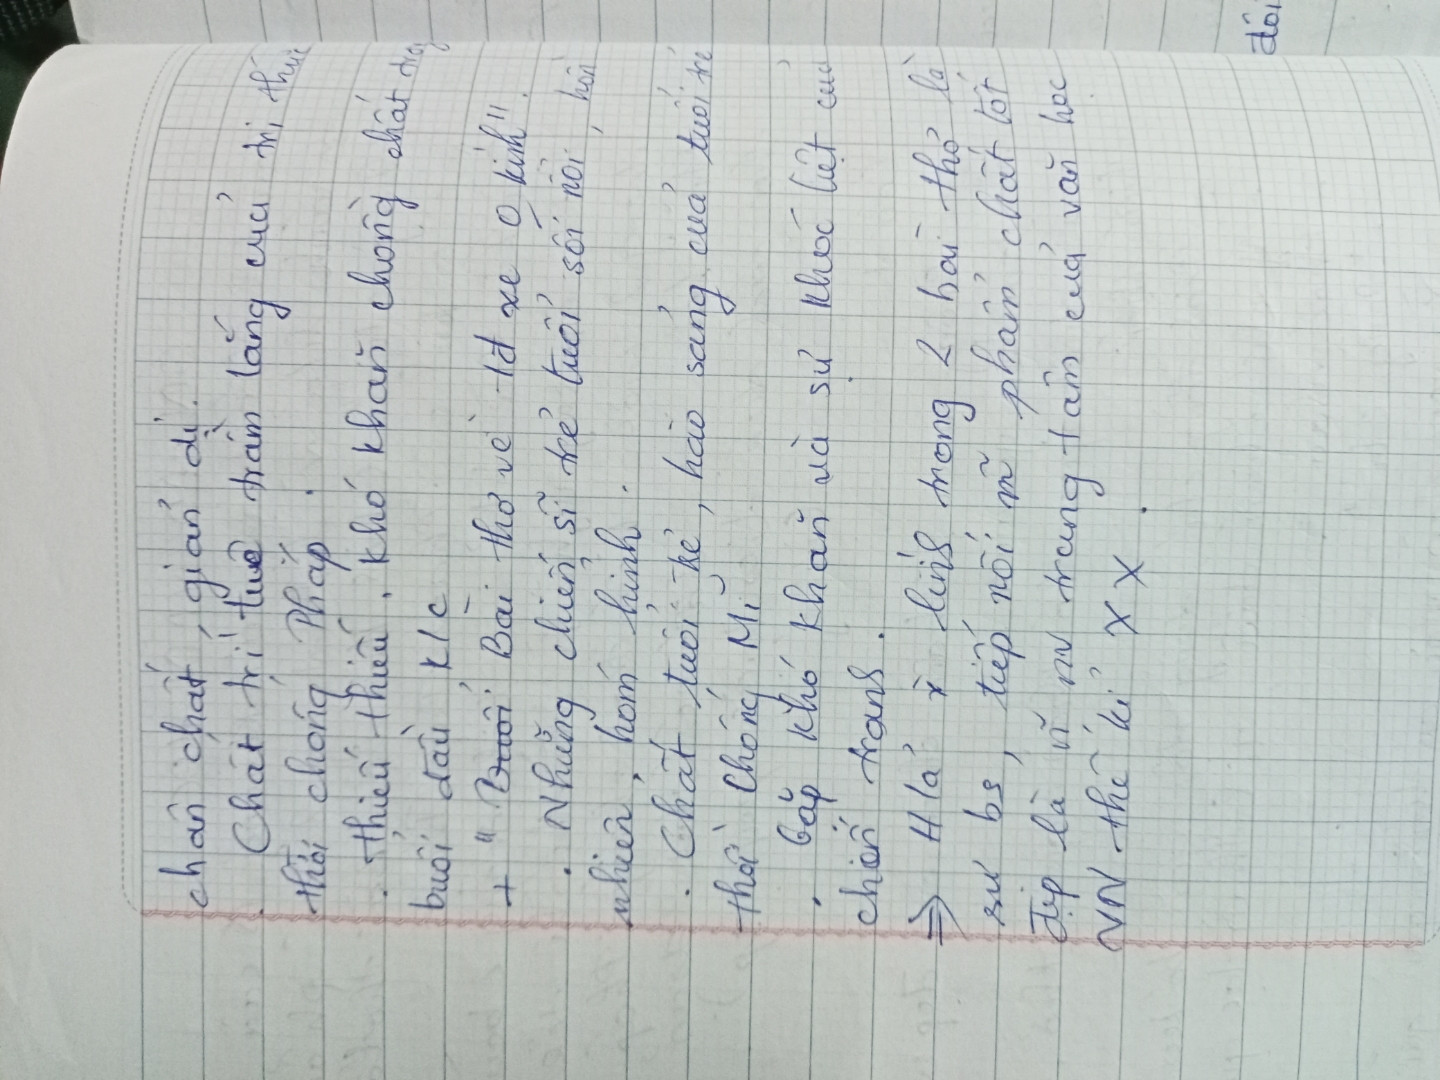 chân chất, giản dị.
. Chất trí tuệ trầm lắng của tri thức
thời chống Pháp.
. thiếu thiếu, khó khăn chồng chất trong
buổi đầu k/c
+ " Bài thơ về tđ xe o kính".
. Những chiến sĩ trẻ tuổi sôi nổi, hồn
nhiên, hóm hỉnh.
. Chất tuổi trẻ, hào sảng của tuổi trẻ
thời chống Mĩ.
. Gấp khó khăn và sự khốc liệt của
chiến tranh.
=> H lính trong 2 bài thơ là
sự bs, tiếp nối phẩm chất tốt
đẹp là nv trung tâm của văn học
VN thế kỉ XX.
đôi